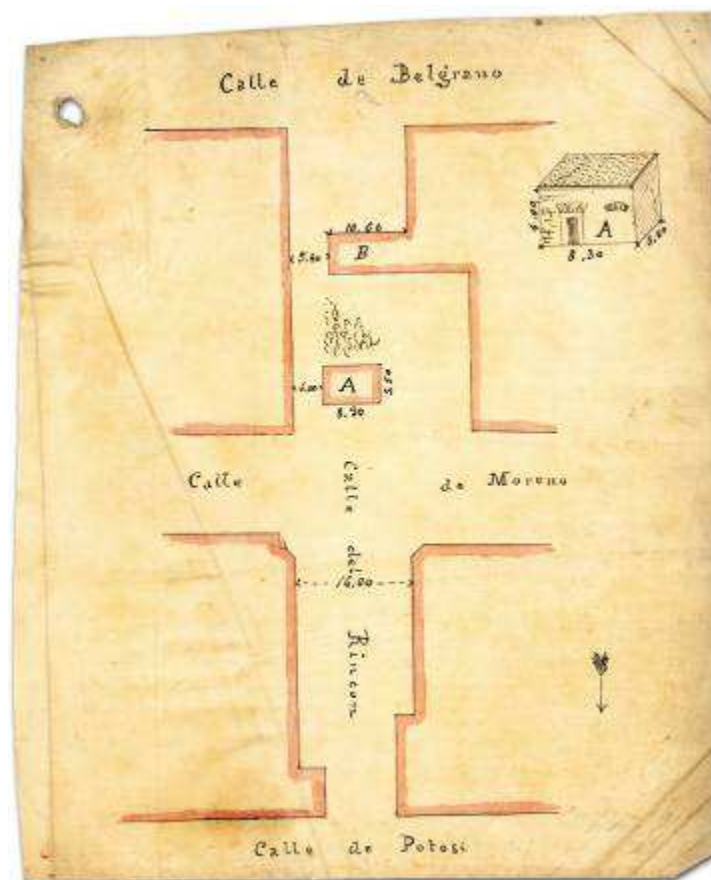 Calle de Belgrano
10,60
B
5.60
A
8,30
A
5.50
8.30
Calle de Moreno
Calle del Rincon
16,00
Calle de Potosi